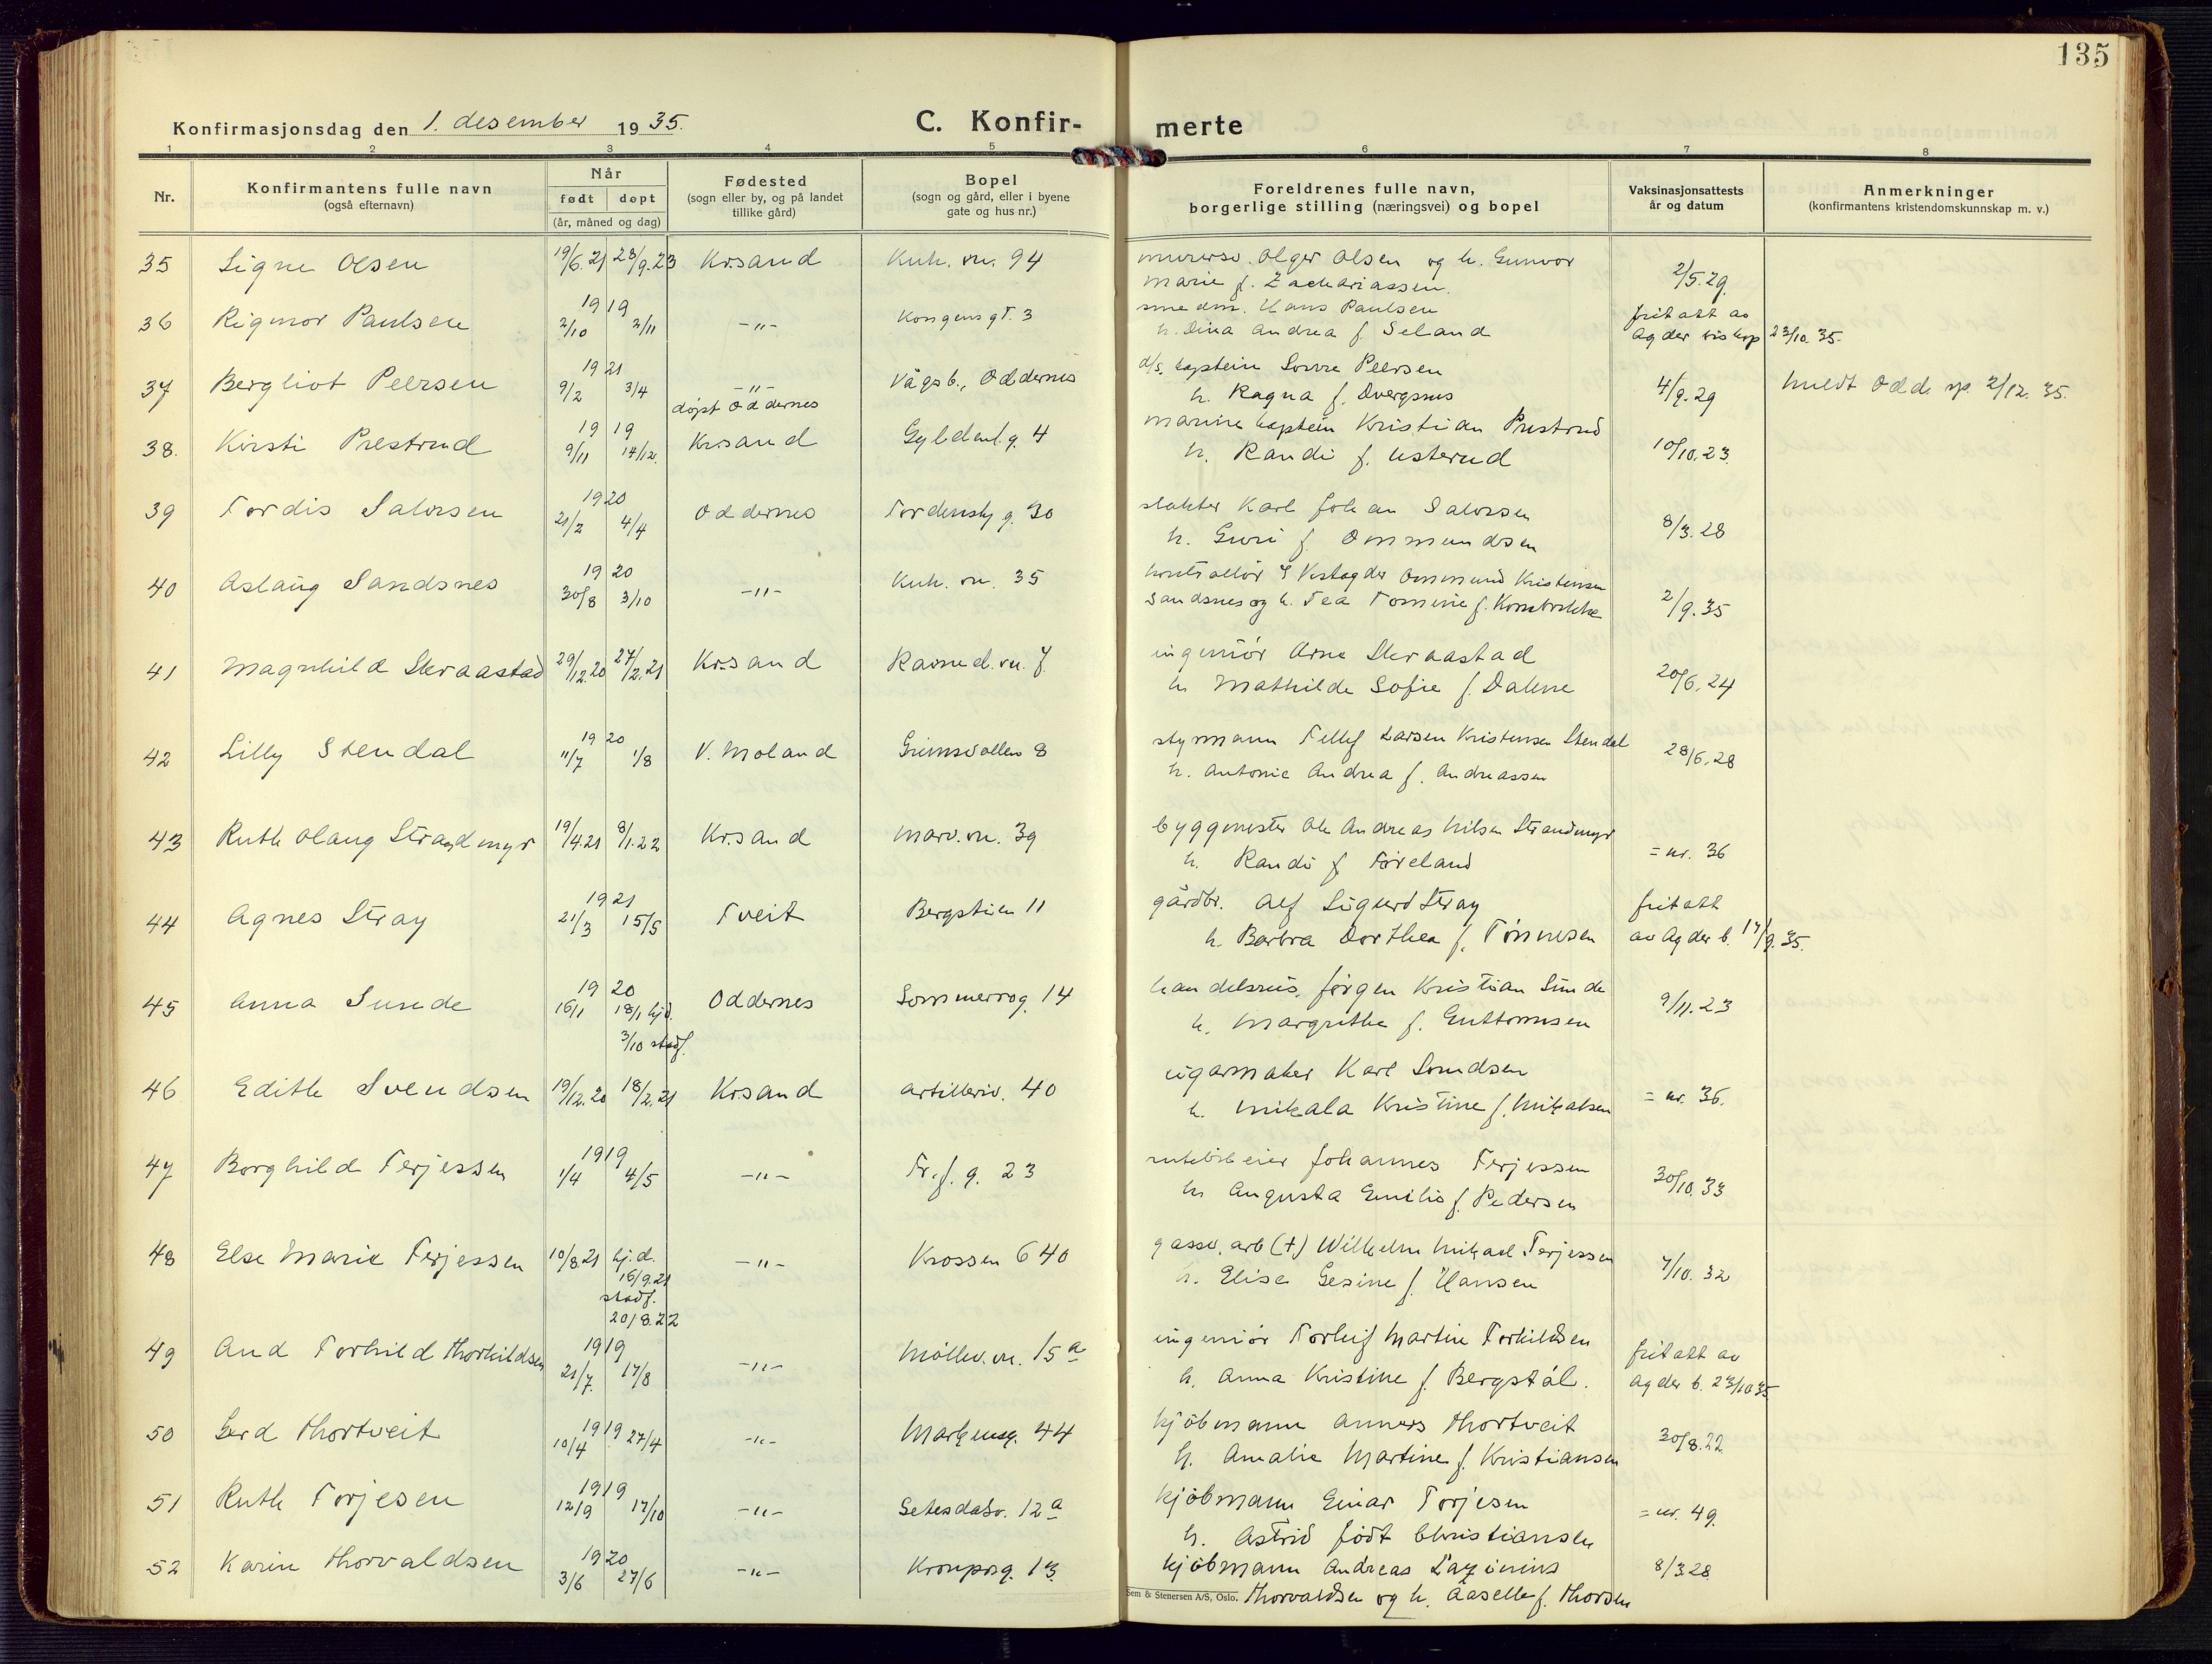 135
Konfirmasjonsdag den 1. desember 1935.
C. Konfir- merte
1 2 3 4 5 6 7 8
Nr.
Konfirmantens fulle navn
(også efternavn)
Når
født døpt
(år, måned og dag)
Fødested
(sogn eller by, og på landet
tillike gård)
Bopel
(sogn og gård, eller i byene
gate og hus nr.)
Foreldrenes fulle navn,
borgerlige stilling (næringsvei) og bopel
Vaksinasjonsattests
år og datum
Anmerkninger
(konfirmantens kristendomskunnskap m. v.)
35 Signe Olsen 19/6.21 23/9.23 Kr.sand Kuh. vn. 94 murersv. Olger Olsen og h. Gunvor
Marie f. Zachariassen. 2/5.29
36 Rigmor Paulsen 1919 2/10 2/11 -"- Kongensgt. 3 smedm. Hans Paulsen
h. Dina Andrea f. Seland fritatt av
Agder biskop 23/10.35.
37 Bergliot Peersen 1921 9/2 3/4 -"- døpt Oddernes Vågsb., Oddernes d/s. kaptein Sverre Peersen
h. Ragna f. Dvergsnes 4/9.29 meldt Odd. sp. 2/12.35.
38. Kirsti Prestrud 1919 9/11 14/12. Kr.sand Gyldenl.g. 4 marinekaptein Kristian Prestrud
h. Randi f. Usterud 10/10.23.
39 Tordis Salvesen 1920 21/2 4/4 Oddernes Tordenskj.g. 30 slakter Karl Johan Salvesen
h. Guri f. Ommundsen 8/3.28
40 Aslaug Sandsnes 1920 30/8 3/10 -"- Kuh. vn. 35 kontrollør i Vestagder Ommund Kristensen
Sandsnes og h. Tea Tomine f. 2/9.35
41 Magnhild Skraastad 29/12.20 27/2.21 Kr.sand Ravned.vn. 7 ingeniør Arne Skraastad
h. Mathilde Sofie f. Dalene 20/6.24
42 Lilly Stendal 1920 11/7 1/8 V. Moland Grimsvollen 8 styrmann Tellef Larsen Kristensen Stendal
h. Antonie Andrea f. Andreassen 28/6.28
43 Ruth Olaug Strandmyr 19/4.21 8/1.22 Kr.sand Marv.vn. 39 byggmester Ole Andreas Nilsen Strandmyr
h. Randi f. Føreland = nr. 36
44 Agnes Stray 1921 21/3 15/5 Tveit Bergstien 11 gårdbr. Alf Sigurd Stray
h. Barbra Dorthea f. Tønnesen fritatt
av Agder b. 17/9.35.
45 Anna Sunde 1920 16/1 18/1 hjd.
3/10 stadf. Oddernes Sommerrog. 14 handelsreis. Jørgen Kristian Sunde
h. Margrethe f. Guttormsen 9/11.23
46 Edith Svendsen 19/12.20 18/2.21 Kr.sand Artilleriv. 40 sigarmaker Karl Svendsen
h. Mikala Kristine f. Mikalsen = nr. 36.
47 Borghild Terjessen 1919 1/4 4/5 -"- Fr.f.g. 23 rutebileier Johannes Terjessen
h. Augusta Emilie f. Pedersen 30/10.33
48 Else Marie Terjessen 10/8.21 hj.d.
16/9.21
stadf.
20/8.22 -"- Krossen 640 gassv.arb (+) Wilhelm Mikael Terjessen
h. Elise Gesine f. Hansen 7/10.32
49 Aud Torhild Thorkildsen 1919 21/7. 17/8 -"- Møllev.vn. 15a ingeniør Torleif Martin Torkildsen
h. Anna Kristine f. Bergstøl. fritatt av
Agder b. 23/10 35
50 Gerd Thortveit 1919 10/4 27/4 -"- Markensg. 44 kjøbmann Anders Thortveit
h. Amalie Martine f. Kristiansen 30/8.22
51 Ruth Torjesen 1919 12/9 17/10 -"- Setesdalsv. 12a kjøbmann Einar Torjesen
h. Astrid født Christiansen = nr. 49.
52 Karin Thorvaldsen 1920 3/6 27/6 -"- Kronprsg. 13 kjøbmann Andreas
Thorvaldsen og h. Aaselle f. Thorsen 8/3 28
Sem & Stenersen A/S, Oslo.